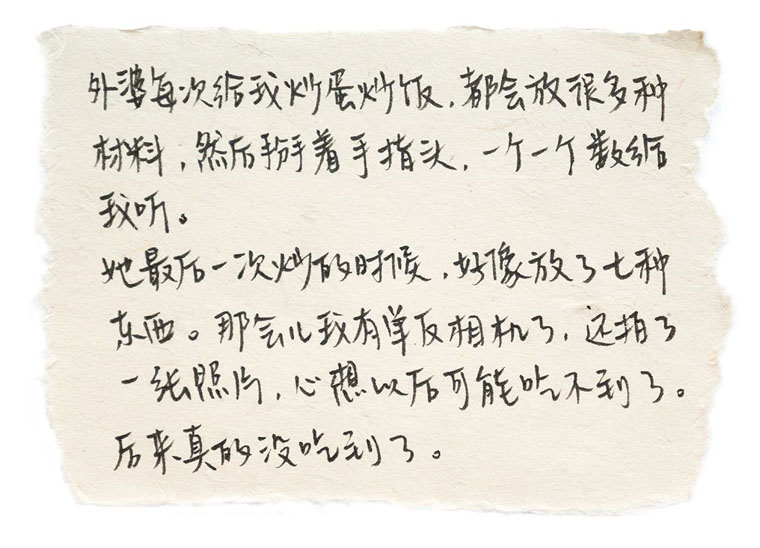 外婆每次给我炒蛋炒饭，都会放很多种
材料，然后掰着手指头，一个一个数给
我听。
她最后一次炒的时候，好像放了七种
东西。那会儿我有单反相机了，还拍了
一张照片，心想以后可能吃不到了。
后来真的没吃到了。